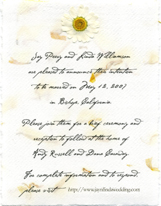 Jay Perry and Linda Williamson
are pleased to announce their intention
to be married on May 12, 2007
in Bishop California
Please join them for a brief ceremony and
reception to follow at the home of
Andy Russell and Dana
For complete information and to respond
please visit http://www.jayslindaswedding.com